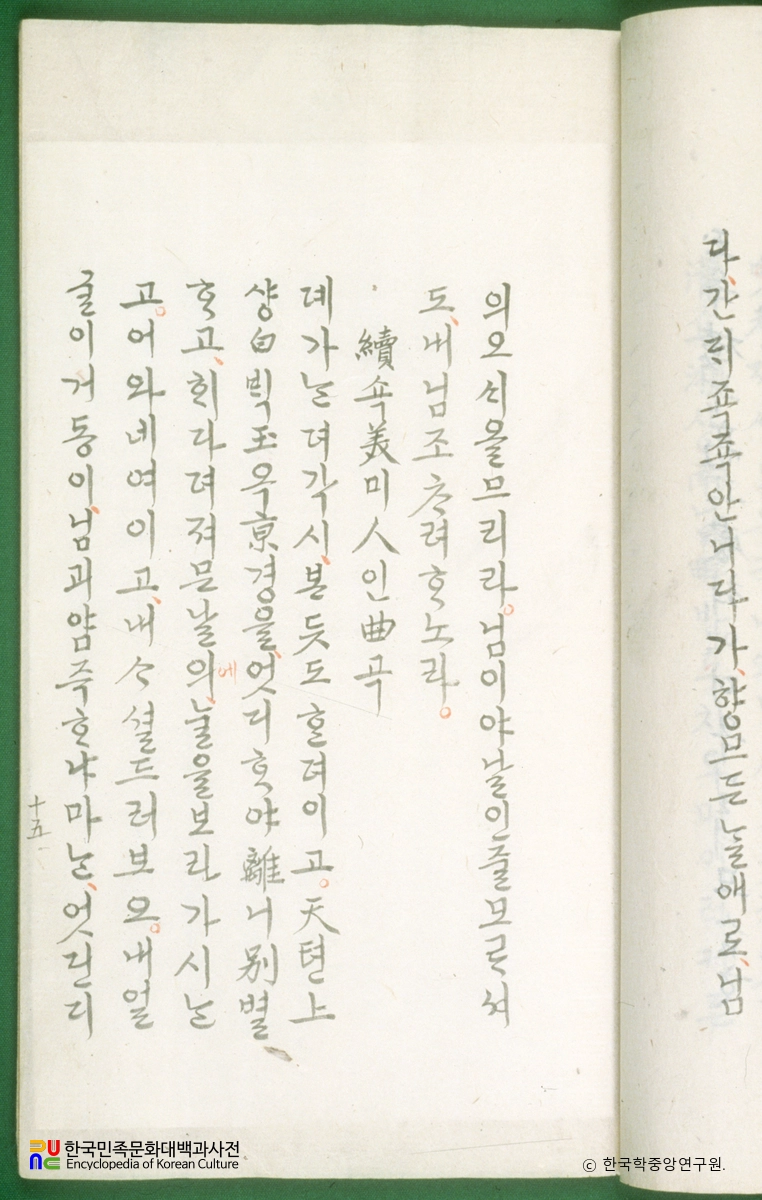 다、간ᄃᆡ죡죡안니다가、향므든ᄂᆞᆯ애로、님
의오시올므리라。님이야날인줄모ᄅᆞ셔
도、내님조ᄎᆞ려ᄒᆞ노라。
續쇽美미人인曲곡
뎨가ᄂᆞᆫ뎌각시、본듯도ᄒᆞᆫ뎌이고。天텬上
샹白ᄇᆡᆨ玉옥亰경을、엇디ᄒᆞ야離니別별
ᄒᆞ고、ᄒᆡ다뎌져믄날의、눌을보라가시ᄂᆞᆫ
에
고。어와네여이고、내ᄉᆞ셜드러보오。내얼
굴이거동이、님괴얌즉ᄒᆞ냐마ᄂᆞᆫ、엇딘디
十五
한국민족문화대백과사전
Encyclopedia of Korean Culture
ⓒ 한국학중앙연구원.